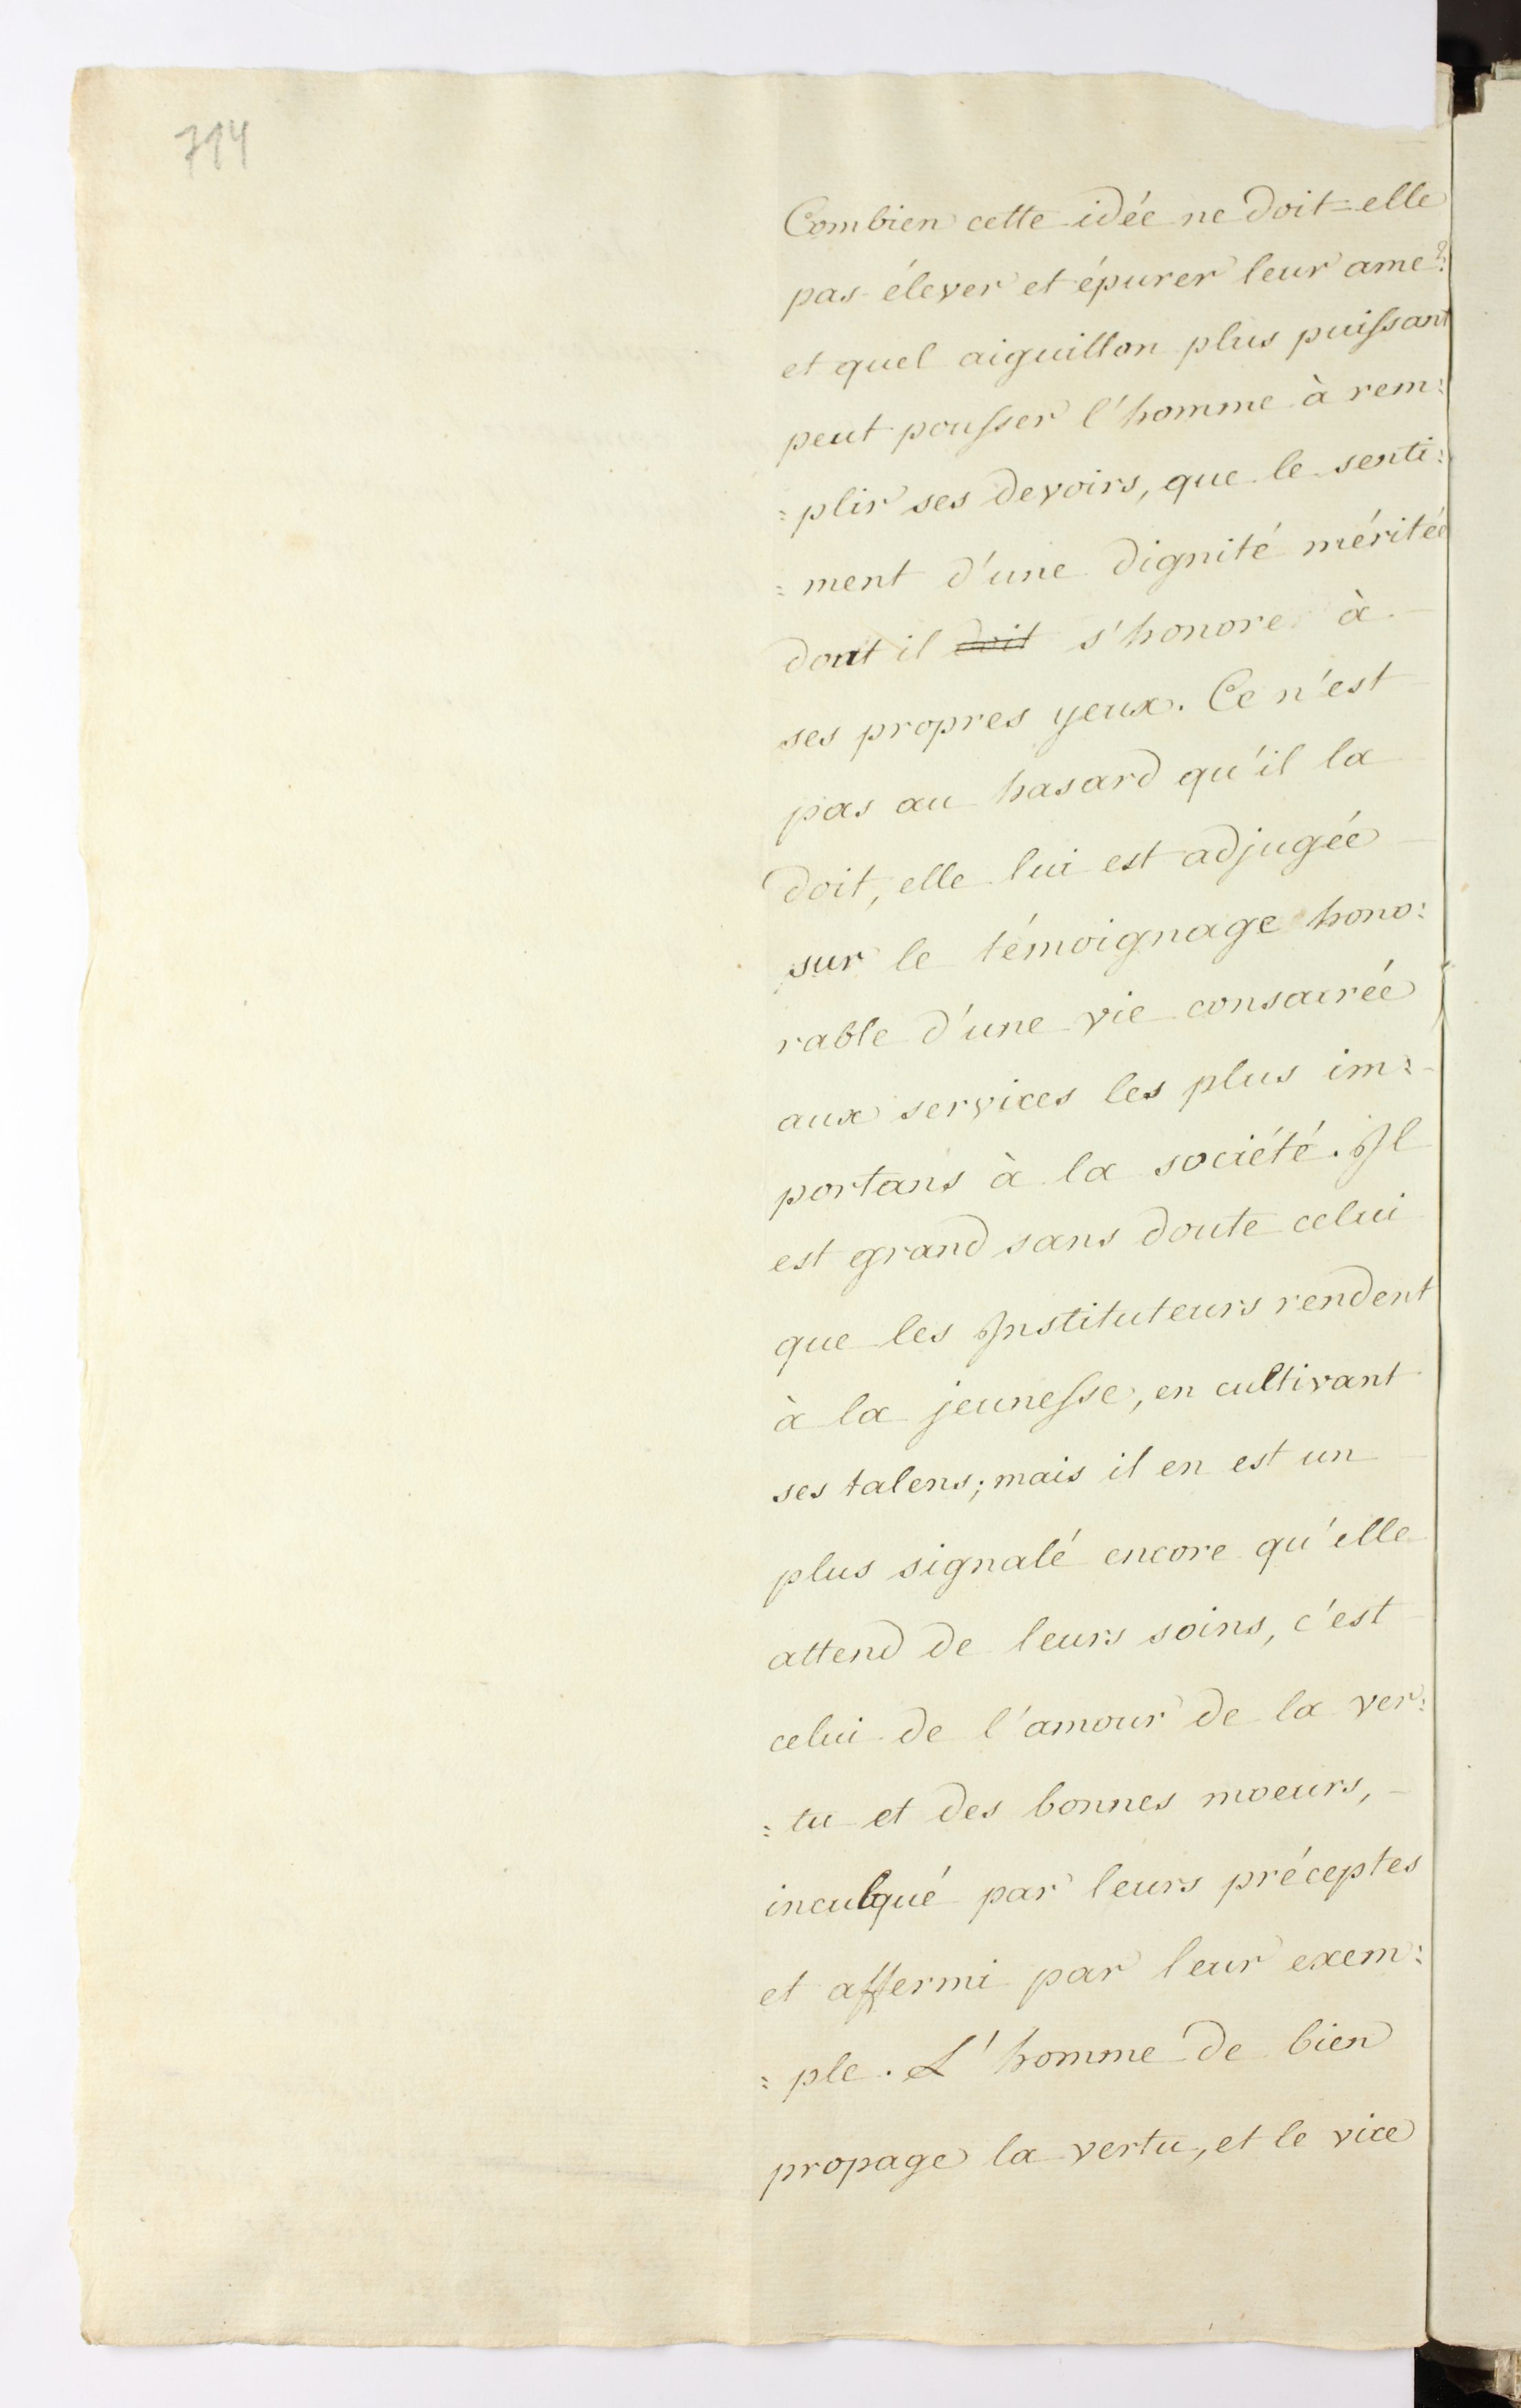 714
Combien cette idée ne doit=elle
pas élever et épurer leur ame?
et quel aiguillon plus puissant
peut pousser l'homme à rem:
=plir ses devoirs, que le senti:
=ment d'une dignité méritée
dont il doit s'honore à
ses propres yeux. Ce n'est
pas au hasard qu'il la
doit, elle lui est adjugée
sur le témoignage hono:
rable d'une vie consacrée
aux services les plus im:
portans à la société. Il
est grand sans doute celui
que les Instituteurs rendent
à la jeunesse, en cultivant
ses talens; mais il en est un
plus signalé encore qu'elle
attend de leurs soins, c'est
celui de l'amour de la ver:
=tu et des bonnes moeurs,
inculqué par leurs préceptes
et affermi par leur exem:
=ple. L'homme de bien
propage la vertu, et le vice